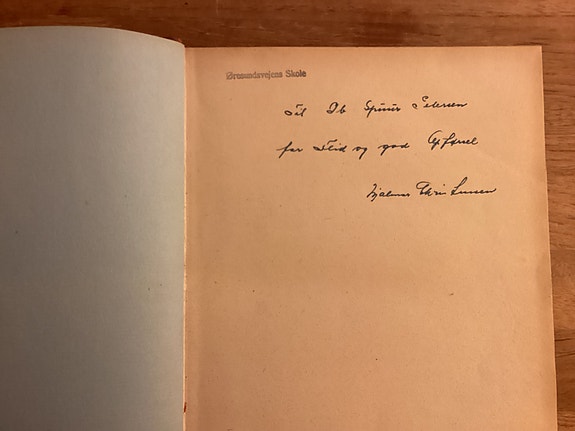 Øresundsvejens Skole
Til Ib Spuur Petersen
for Flid og god Opførsel
Hjalmar